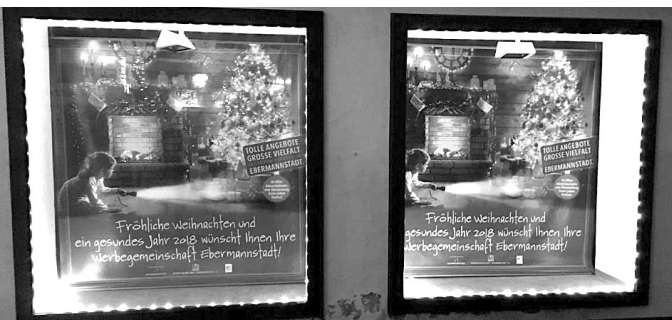 TOLLE ANGEBOTE
GROSSE VIELFALT
EBERMANNSTADT
Fröhliche Weihnachten und
ein gesundes Jahr 2018 wünscht Ihnen Ihre
Werbegemeinschaft Ebermannstadt!
TOLLE ANGEBOTE
GROSSE VIELFALT
EBERMANNSTADT
Fröhliche Weihnachten und
gesundes Jahr 2018 wünscht Ihnen Ihre
Werbegemeinschaft Ebermannstadt!